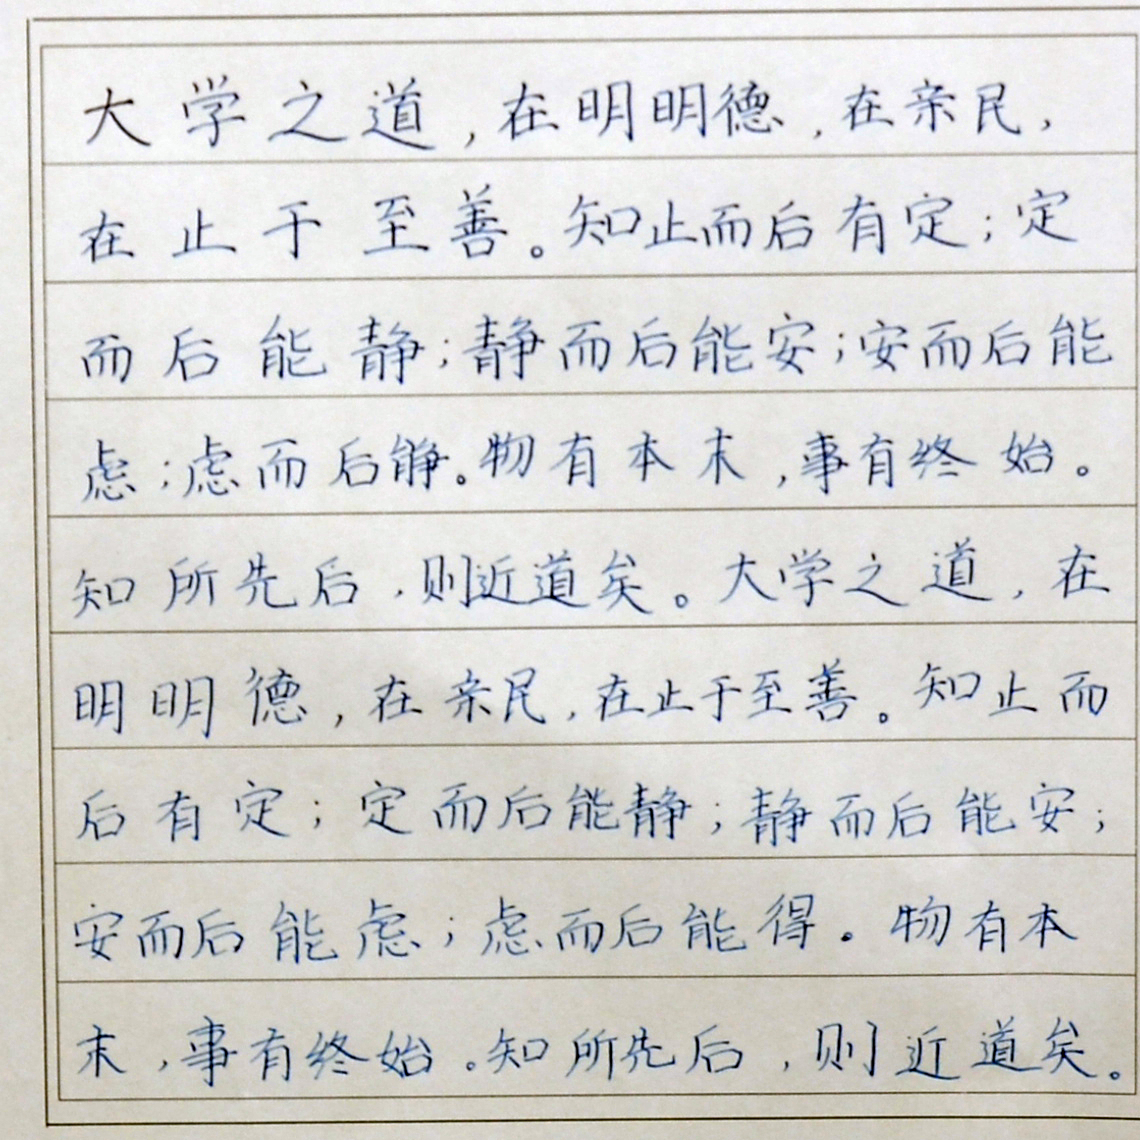 大学之道,在明明德,在亲民,
在止于至善。知止而后有定;定
而后能静;静而后能安;安而后能
虑;虑而后静。物有本末,事有终始。
知所先后,则近道矣。大学之道,在
明明德,在亲民,在止于至善。知止而
后有定;定而后能静;静而后能安;
安而后能虑;虑而后能得。物有本
末,事有终始。知所先后,则近道矣。